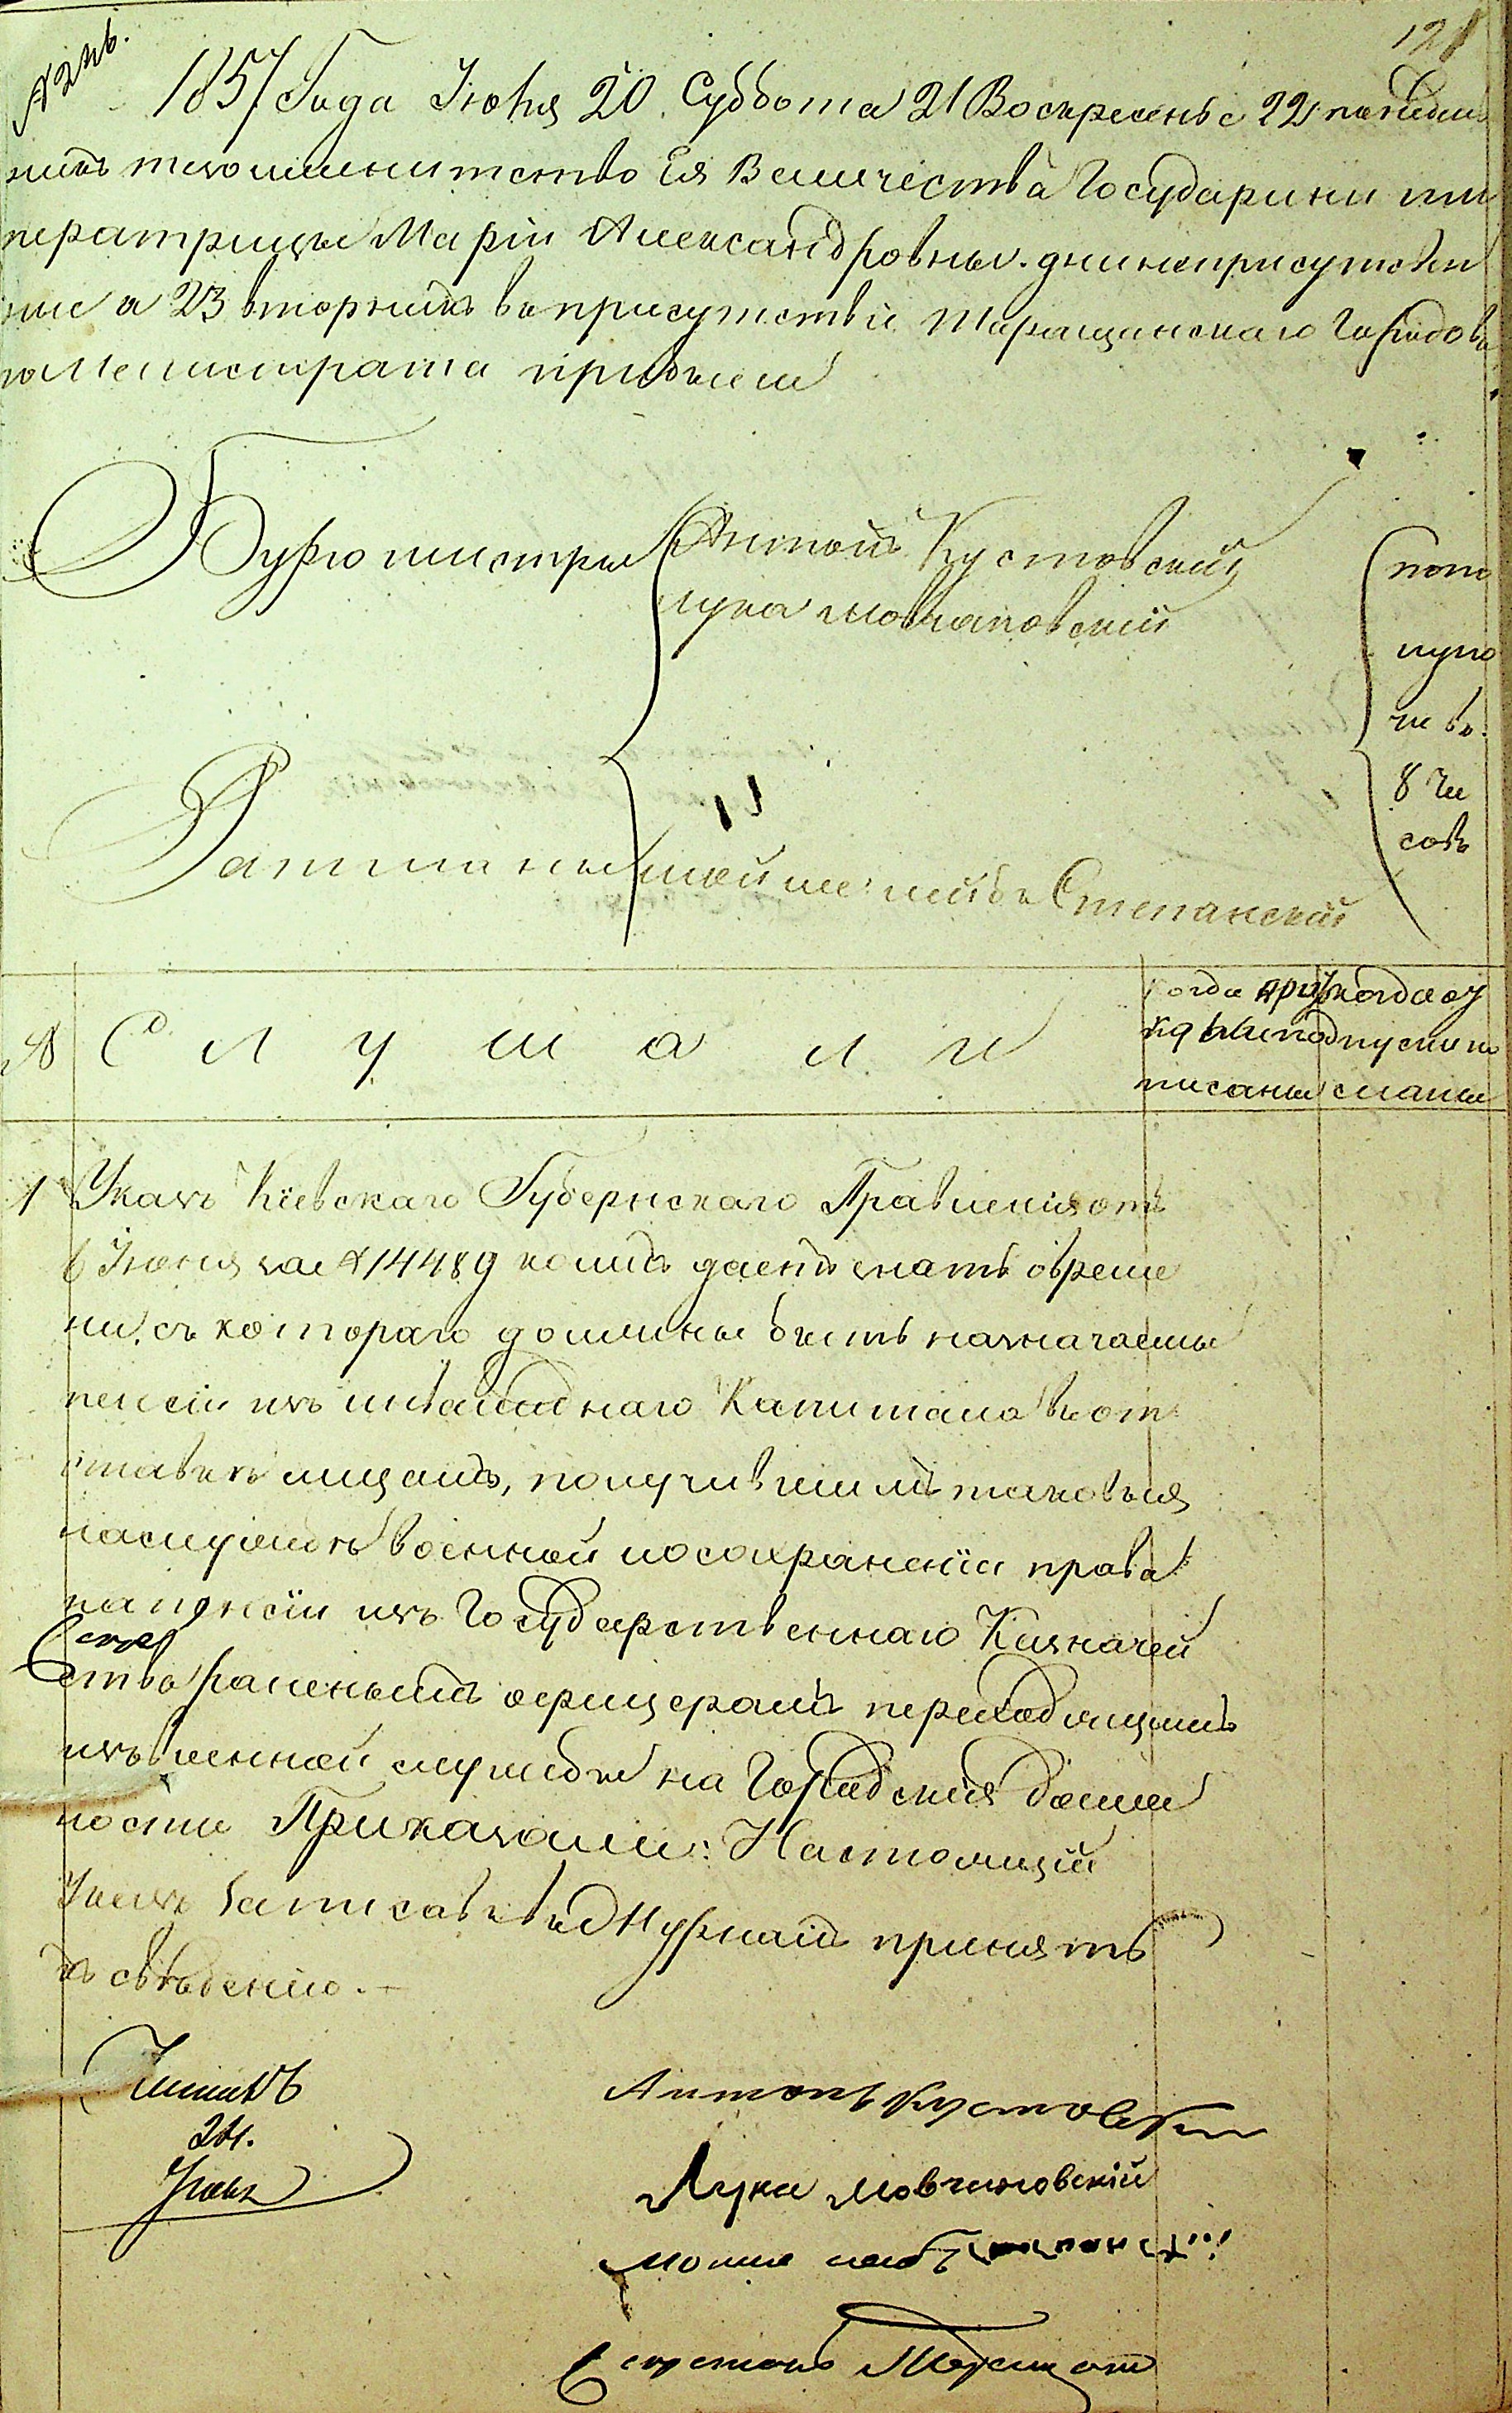 128
1857 Года Іюня 20. Суббота 21 Воскресенье 22 понедѣль
никъ тезоименитство Ея Величества Государини им
ператрицы Маріи Александровны. дни неприсутствен
ные а 23 вторникъ въ присутствіи Таращанскаго Городова
го Мегистрата прибыли
Бургомистры Антонъ Кустовскій попо
Лука Мовчановскій лупо
чи въ
8 ча
Ратманы Мойше Лейбъ Степанскій совъ
№ Слушали
1 Указъ Кіевскаго Губернскаго Правленія отъ
6 Іюня за № 14489 коимъ даетъ знать о време
ни, съ котораго должны быть назначаемы
пенсіи изъ инвалиднаго Капитала въ от
ставкѣ лицамъ, получившимъ таковыя
на службѣ военной и о сохраненіи права
на пенсіи изъ Государственнаго Казначей
ства раненымъ офицерамъ переходящимъ
изъ военной службы на Городскія долж
ности Приказали: Настоящій
Указъ записавъ въ Журналъ принять
къ свѣденію.
Антонъ Кустовскій
Лука Мовчановскій
Мошко Лейбъ Степанскій
Секретарь